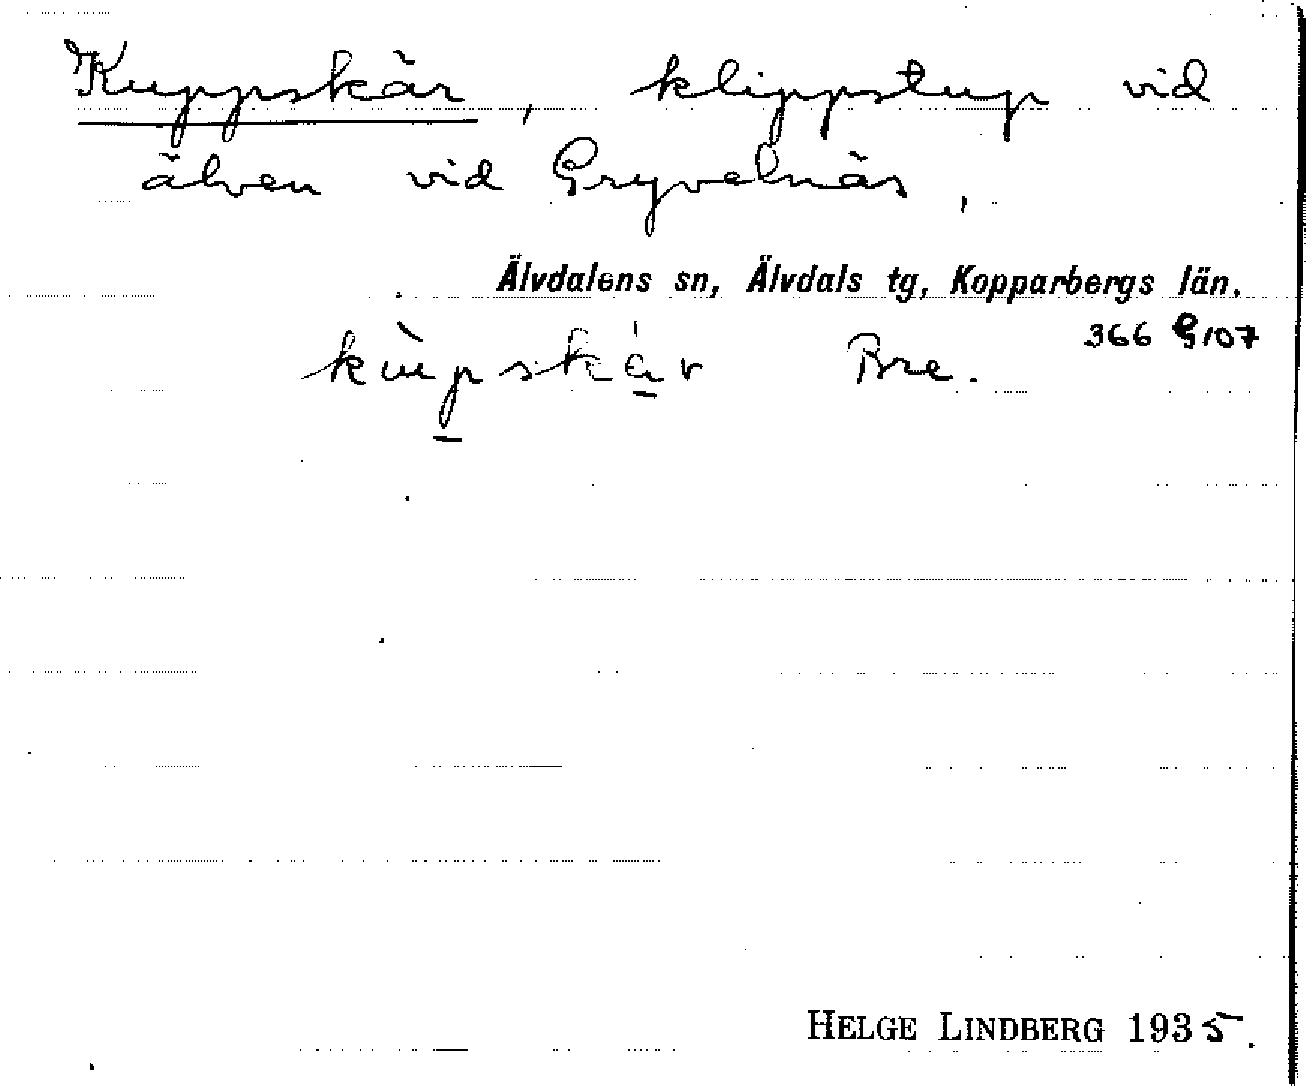 Kuppskär, klippstup vid
älven vid Gryvelnäs,
Älvdalens sn, Älvdals tg, Kopparbergs län.
366 G107
kùpskár Bre.
HELGE LINDBERG 1935.